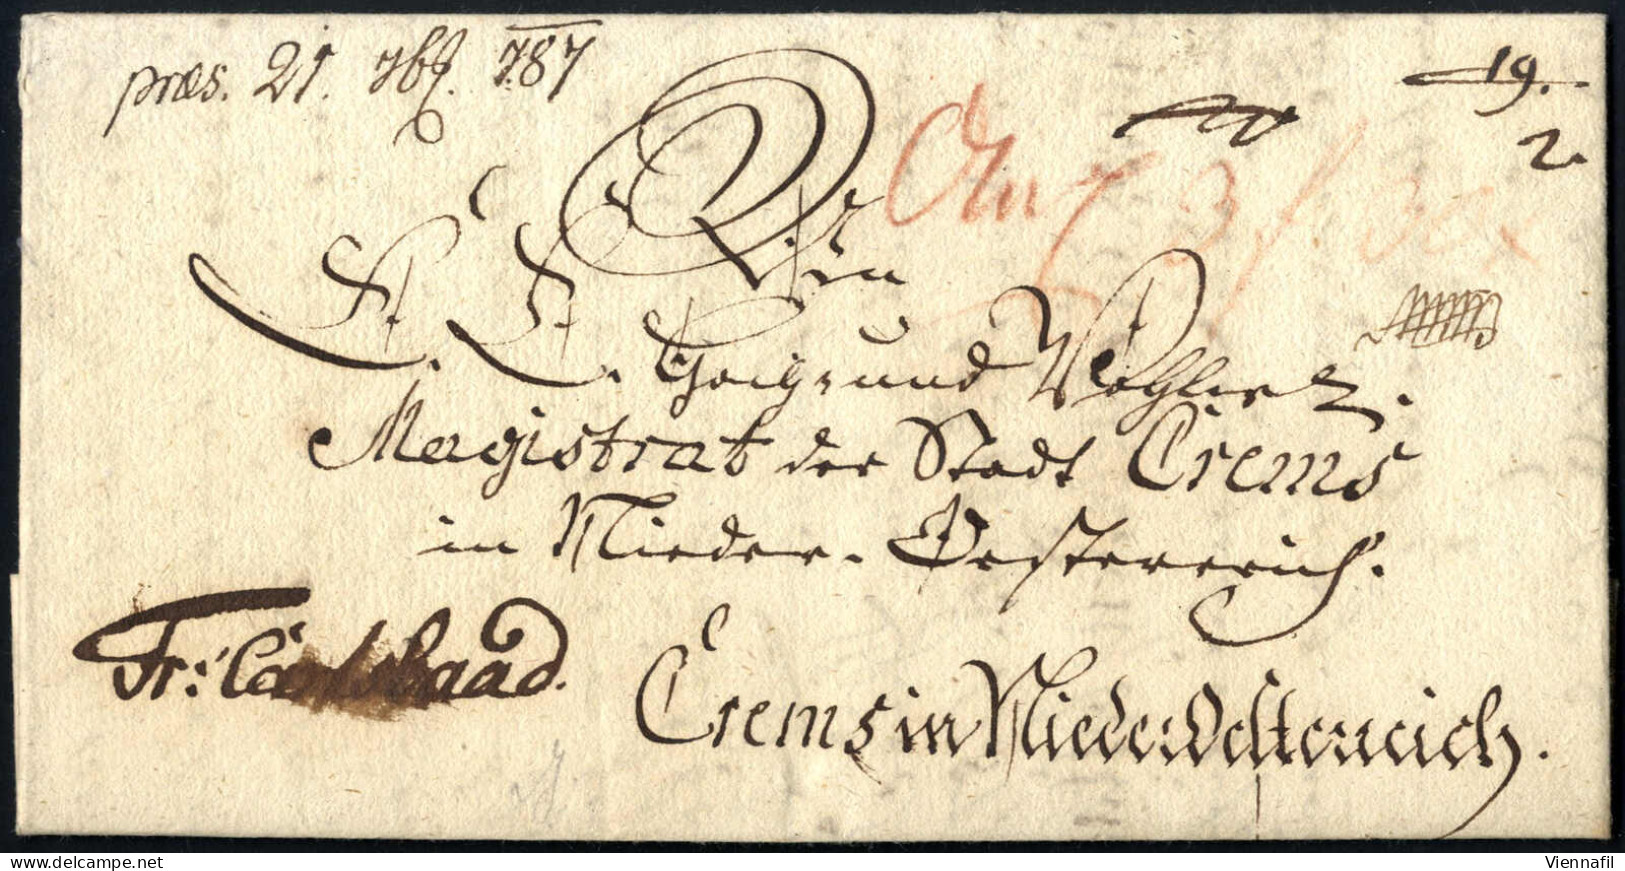 præs. 21. 7bʒ. 787
19.
2.
An
E. E. und Wohlw.
Magistrat der Stadt Crems
in Nieder-Oesterreich.
Fr: Carlsbaad.
Crems in NiederOesterreich.
www.delcampe.net
Viennafil